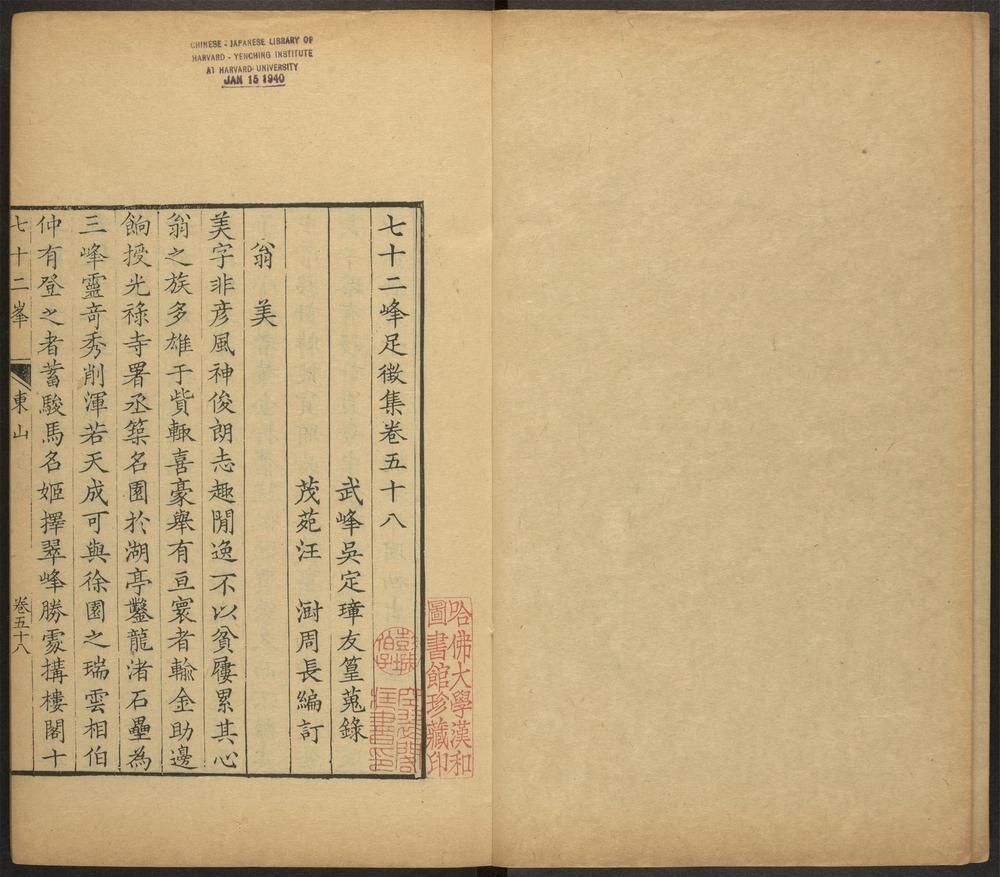 CHINESE - JAPANESE LIBRARY OF
HARVARD - YENCHING INSTITUTE
AT HARVARD UNIVERSITY
JAN 15 1940
七十二峰足徵集卷五十八
武峰吳定璋友篁蒐錄
茂苑汪　澍周長編訂
翁美
美字非彥風神俊朗志趣閒逸不以貧屢累其心
翁之族多雄于貲輒喜豪舉有亘寰者輸金助邊
餉授光祿寺署丞築名園於湖亭鑿龍渚石壘為
三峰靈奇秀削渾若天成可與徐園之瑞雲相伯
仲有登之者蓄駿馬名姬擇翠峰勝處搆樓閣十
七十二峯
東山
卷五十八
哈佛大學漢和
圖書館珍藏印